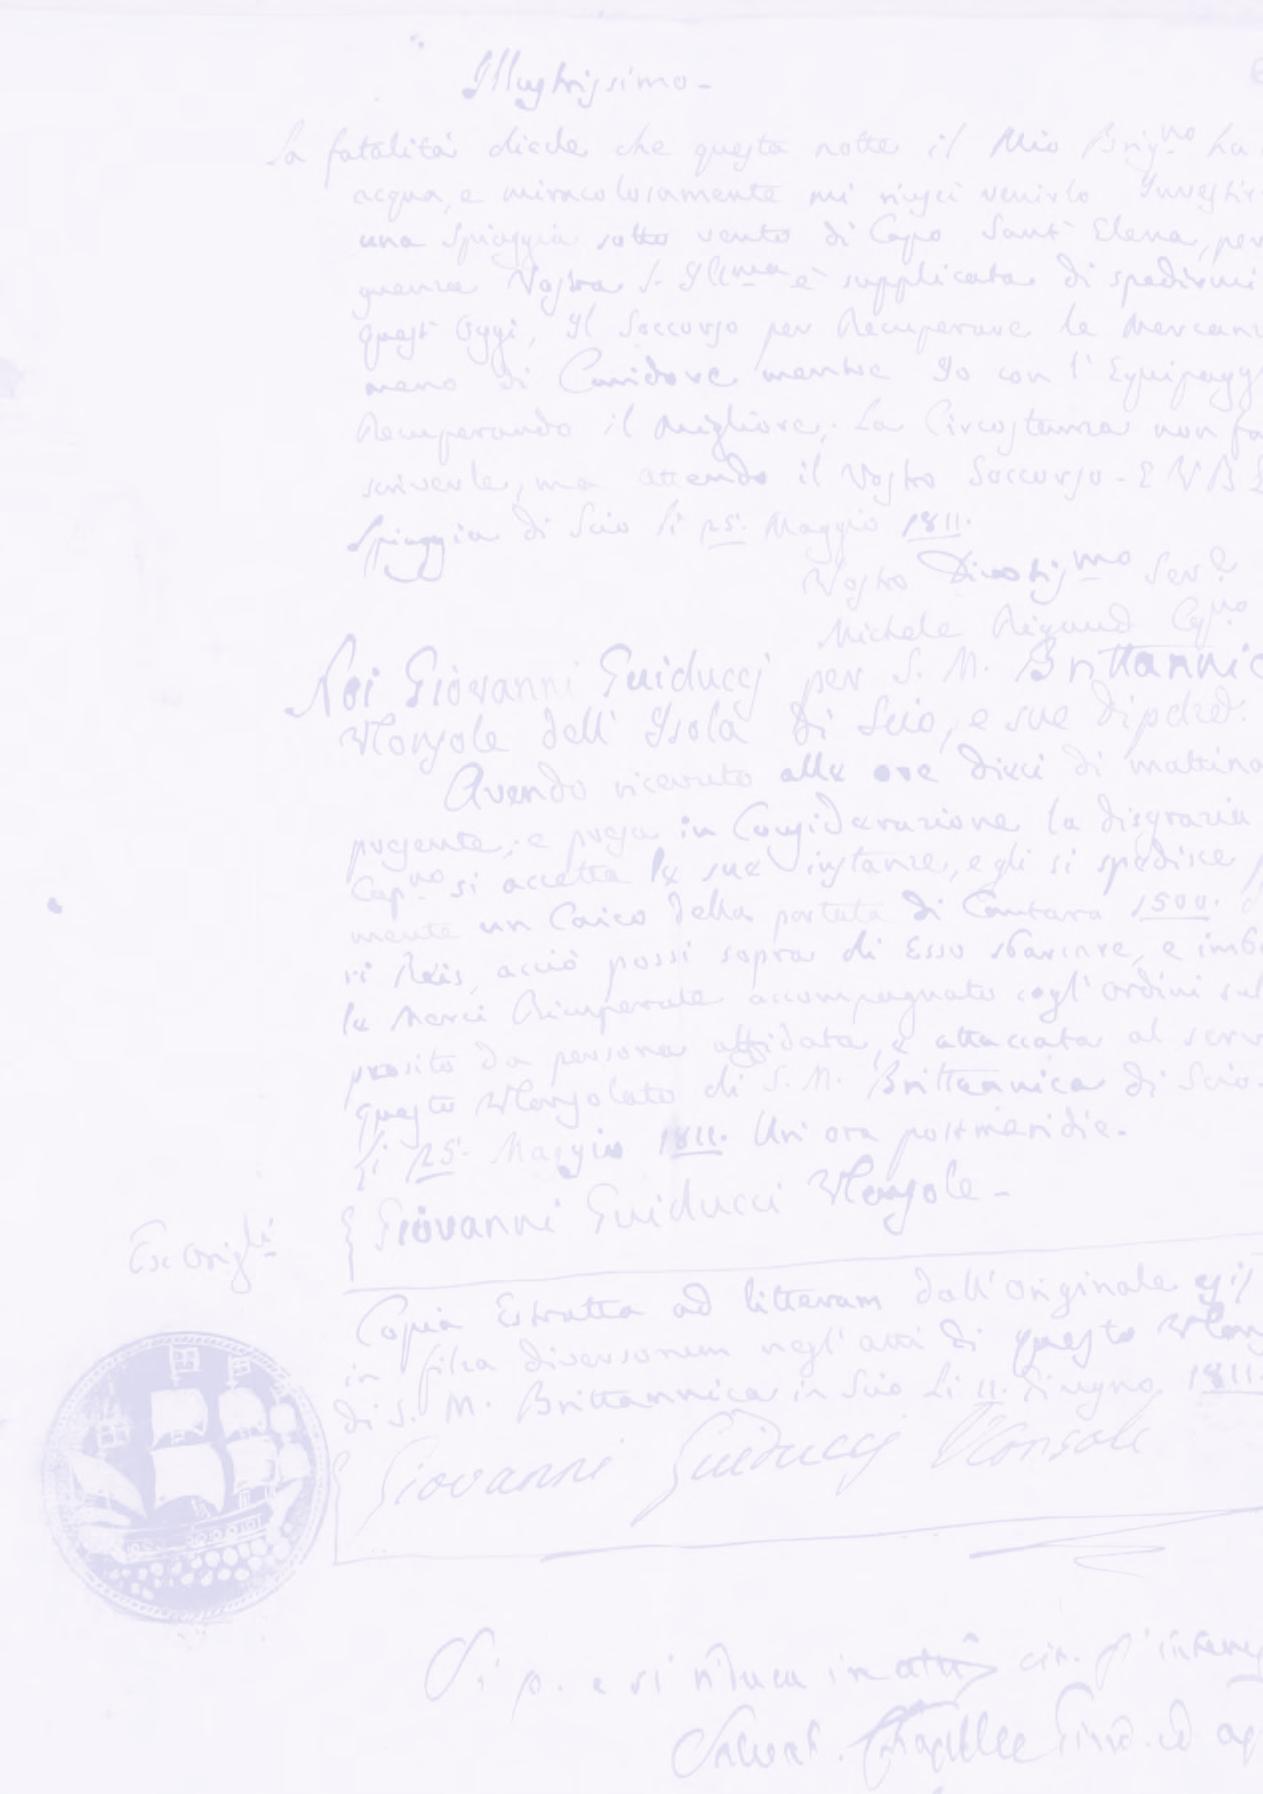 Illustrissimo -
La fatalità diede che questa notte il Mio Brig.no ha
acqua, e miracolosamente mi riuscì venirlo Investir
una spiaggia sotto vento di Capo Sant' Elena, per
guenza Vostra S. Ill.ma è supplicata di spedirmi
quest' Oggi, Il Soccorso per Recuperare le mercan
meno di Corridore mentre Io con l' Equipagg
Recuperando il migliore; La Circostanza non fa
scriverle, ma attendo il Vostro Soccorso - E V B
Spiaggia di Scio li 25. Maggio 1811.
Vostro Divotis.mo Ser.e
Michele Rigaud Cap.no
Noi Giovanni Guiducci per S. M. Brittannic
VConsole dell' Isola di Scio, e sue dipded.
Avendo ricevuto alle ore dieci di mattina
presente, e presa in Considerazione la disgrazia
Cap.no si accetta le sue instanze, e gli si spedisce p
mente un Caico della portata di Cantara 1500.
ri Reis, acciò possi sopra di Esso sbarcare, e imb
le Merci Ricuperate accompagnato cogl' ordini sul
posito da persona affidata, e attaccata al serv
questo VConsolato di S. M. Brittannica di Scio -
li 25. Maggio 1811. Un' ora postmeridie.
Giovanni Guiducci VConsole -
Ex Origli
Copia Estratta ad litteram dall' Originale esis
in filza diversorum negl' atti di questo VCons
di S. M. Brittannica in Scio Li 11. Giugno 1811.
Giovanni Guiducci VConsole
Si p. e si riduca in atti